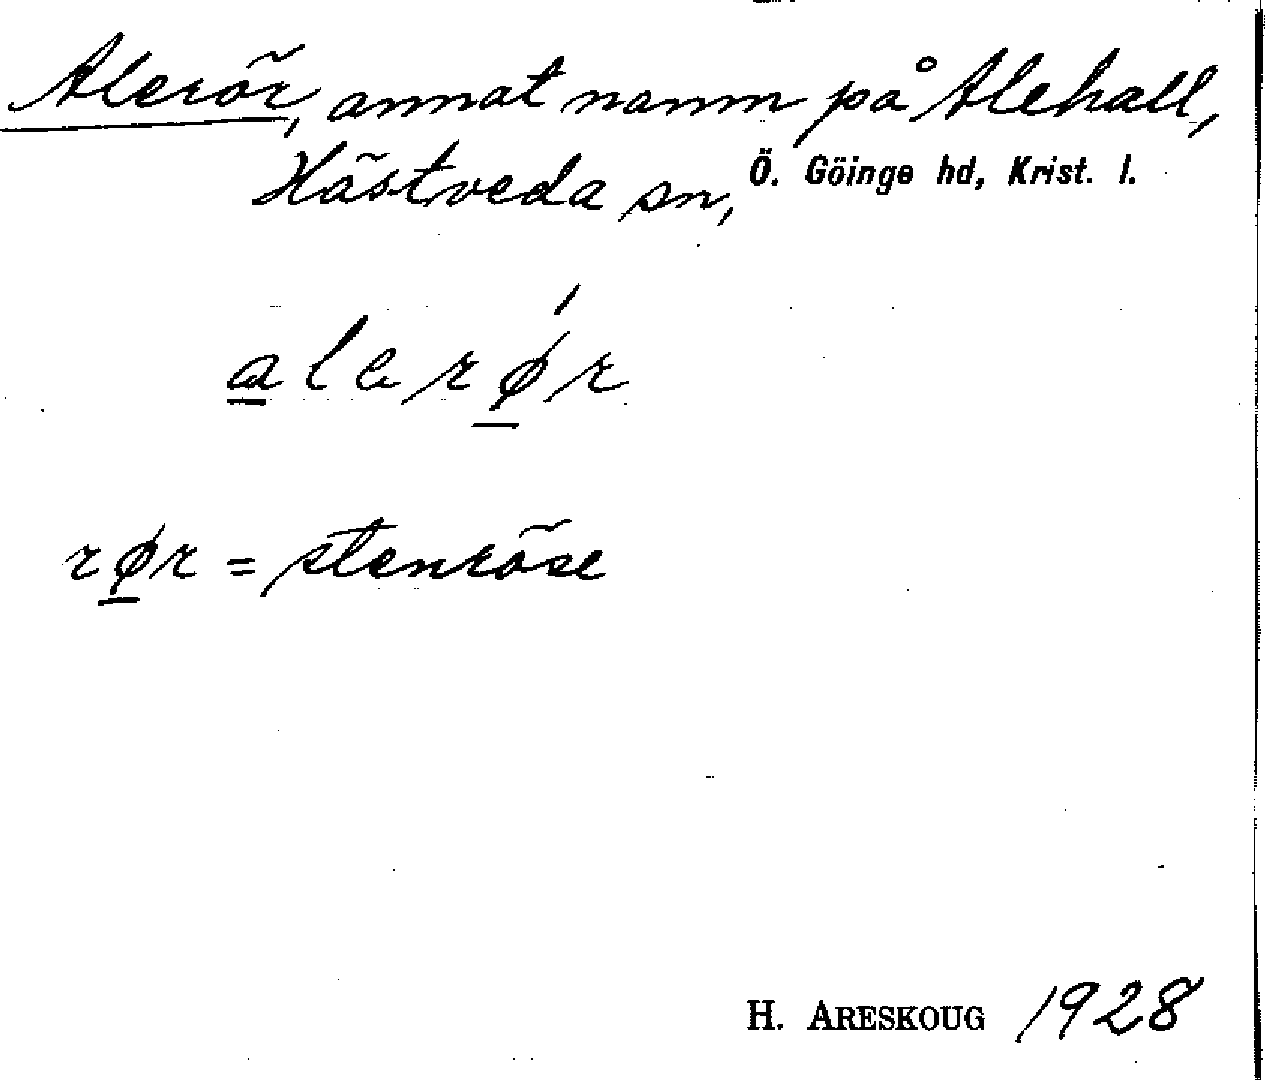 Alerör, annat namn på Alehall,
Hästveda sn, Ö. Göinge hd, Krist. l.
alerǿr
rør = stenröse
H. ARESKOUG 1928